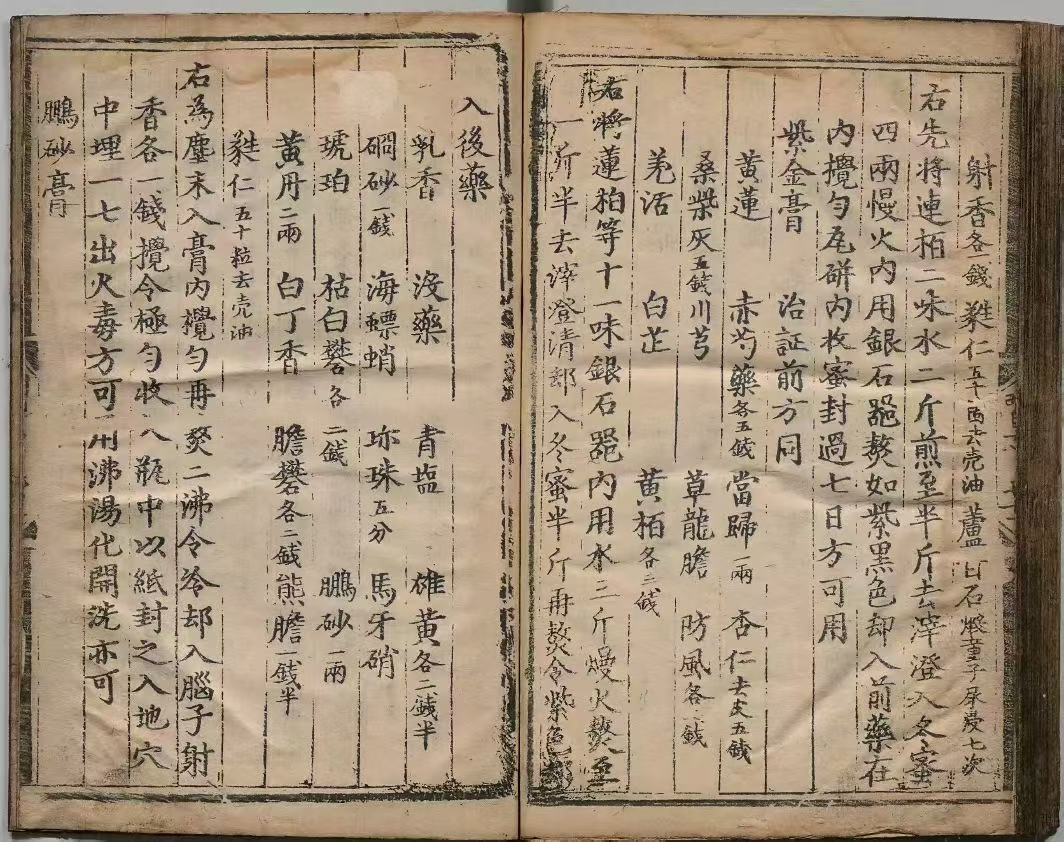 射香各一錢 蕤仁五十〇去壳油 蘆甘石煅童子尿浸七次
右先將連柏二味水二斤煎至半斤去滓澄入冬蜜
四兩慢火内用銀石器熬如紫黑色却入前藥在
内攪勻瓦缾内收蜜封過七日方可用
紫金膏 治証前方同
黄蓮 赤芍藥各五錢 當歸一兩 杏仁去皮五錢
桑柴灰五錢 川芎 草龍膽 防風各一錢
羌活 白芷 黄栢各二錢
右將蓮柏等十一味銀石器内用水三斤慢火熬至
一斤半去滓澄清却入冬蜜半斤再熬令紫色
入後藥
乳香 没藥 青塩 雄黄各二錢半
硇砂一錢 海螵蛸 珎珠五分 馬牙硝
琥珀 枯白礬各二錢 鵬砂一兩
黄丹二兩 白丁香 膽礬各二錢 熊膽一錢半
蕤仁五十粒去壳油
右為塵末入膏内攪勻再熬二沸令冷却入腦子射
香各一錢攪令極勻收入瓶中以紙封之入地穴
中埋一七出火毒方可用沸湯化開洗亦可
鵬砂膏